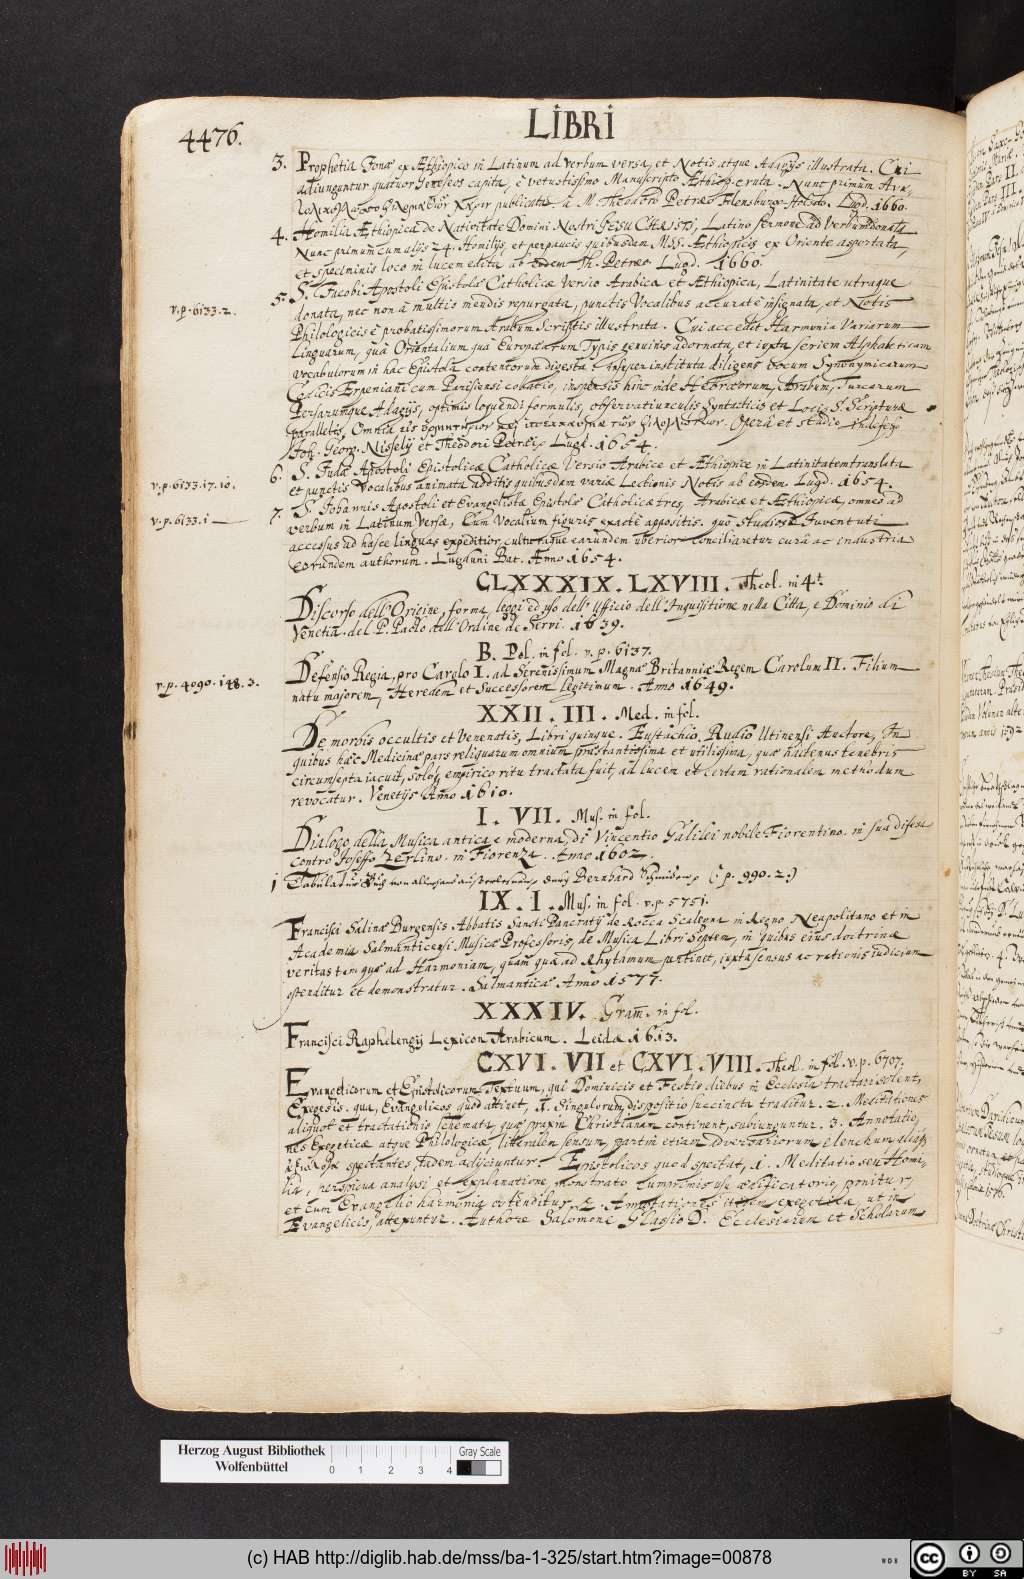 4476.
LIBRI
3. Prophetia Jonæ ex Æthiopico in Latinum ad verbum versa, et Notis atque Adagijs illustrata. Cui
adiunguntur quatuor Geneseos capita, è vetustissimo Manuscripto Æthiop. eruta. Nunc primum
publicata, à M. Theodoro Petræo Flensburgo Holsato. Lugd. 1660.
4. Homilia Æthiopica de Nativitate Domini Nostri JESU CHRISTI, Latino sermone ad verbum donata
Nunc primum cum alijs 24. Homilijs, et perpaucis quibusdam MSS. Æthiopicis ex Oriente asportata,
et speciminis loco in lucem edita ab eodem Th. Petreo Lugd. 1660.
5. S. Jacobi Apostoli Epistolæ Catholicæ versio Arabica et Æthiopica, Latinitate utraque
v.p. 6133.2.
donata, nec non à multis mendis repurgata, punctis Vocalibus accuratè insignata, et Notis
Philologicis è probatissimorum Arabum Scriptis illustrata. Cui accedit Harmonia Variarum
Linguarum, quâ Orientalium quâ Europæarum Typis genuinis adornata, et iuxta seriem Alphabeticam
vocabulorum in hac Epistola contentorum digesta. Insuper instituta diligens vocum Synonymicarum
Codicis Erpeniani cum Parisiensi collatio, inspersis hinc inde Hebræorum, Arabum, Turcarum
Persarumque Adagijs, optimis loquendi formulis, observatiunculis Syntacticis et Locis S. Scripturæ
parallelis, Omnia Operâ et studio indefesso
Joh. Georg. Nisselij et Theodori Petræi, Lugd. 1654.
6. S. Judæ Apostoli Epistolicæ Catholicæ Versio Arabicè et Æthiopicè in Latinitatem translata
v.p. 6133.17.18.
et punctis vocalibus animata additis quibusdam variæ Lectionis Notis ab eisdem Lugd. 1654.
7. S. Johannis Apostoli et Evangelistæ Epistolæ Catholicæ tres, Arabicæ et Æthiopicæ, omnes ad
v.p. 6133.1
verbum in Latinum Versæ, Cum Vocalium figuris exactè appositis. quò studiosæ Juventuti
accessus ad hasce linguas expeditior, culturaque earundem uberior conciliaretur curâ ac industriâ
eorundem authorum. Lugduni Bat. Anno 1654.
CLXXXIX. LXVIII. Theol. in 4t.
Discorso dell' Origine, forma, leggi ed uso dell' Ufficio dell' Inquisitione nella Citta, e Dominio di
Venetia. del P. Paolo dell' Ordine de Servi. 1639.
B. Pol. in fol. v.p. 6137.
Defensio Regia, pro Carolo I. ad Serenissimum Magnæ Britanniæ Regem Carolum II. Filium
v.p. 4090. 148. 3.
natu majorem, Heredem et Successorem legitimum. Anno 1649.
XXII. III. Med. in fol.
De morbis occultis et Venenatis, Libri quinque. Eustachio Rudio Utinensi Auctore, In
quibus hæc Medicinæ pars reliquarum omnium præstantissima et utilissima, quæ hactenus tenebris
circumsepta iacuit, soloq́ empirico ritu tractata fuit, ad lucem et certam rationalem methodum
revocatur. Venetijs Anno 1610.
I. VII. Mus. in fol.
Dialogo della Musica antica e moderna, di Vincentio Galilei nobile Fiorentino. in sua difesa
contro Joseffo Zerlino. in Fiorenza. Anno 1602.
1 Tabulatur Buch von allerhand durch Bernhard Schmiden, (:p. 990. 2:)
IX. I. Mus. in fol. v.p. 5751.
Francisci Salinæ Burgensis Abbatis Sancti Pancratij de Rocca Scalegna in Regno Neapolitano et in
Academia Salmanticensi Musicæ Professoris, de Musica Libri Septem, in quibus eius doctrinæ
veritas tam quæ ad Harmoniam, quam quæ ad Rhytmum pertinet, iuxta sensus ac rationis iudicium
ostenditur et demonstratur. Salmanticæ Anno 1577.
XXXIV. Gram. in fol.
Francisci Raphelengij Lexicon Arabicum. Leidæ 1613.
CXVI. VII et CXVI. VIII. Theol. in fol. v.p. 6707.
Evangelicorum et Epistolicorum Textuum, qui Dominicis et Festis diebus in Ecclesia tractari solent,
Exegesis. qua, Evangelicos quod attinet, 1. Singulorum dispositio succincta traditur. 2. Meditationes
aliquot et tractationis schemata, quæ praxin Christianam continent, subiunguntur. 3. Annotatio-
nes Exegeticæ atque Philologicæ litteralem sensum, partim etiam adversariorum elenchum
spectantes, tandem adijciuntur. Epistolicos quod spectat, 1. Meditatio seu Homi-
lia, perspicua analysi et explanatione, monstrato inprimis usu ædificatorio, ponitur,
et cum Evangelio harmonia ostenditur. 2. Annotationes itidem exegeticæ, ut in
Evangelicis, attexuntur. Authore Salomone Glassio D. Ecclesiarum et Scholarum
Herzog August Bibliothek
Wolfenbüttel
0 1 2 3 4
Gray Scale
(c) HAB http://diglib.hab.de/mss/ba-1-325/start.htm?image=00878
WDB
cc BY SA